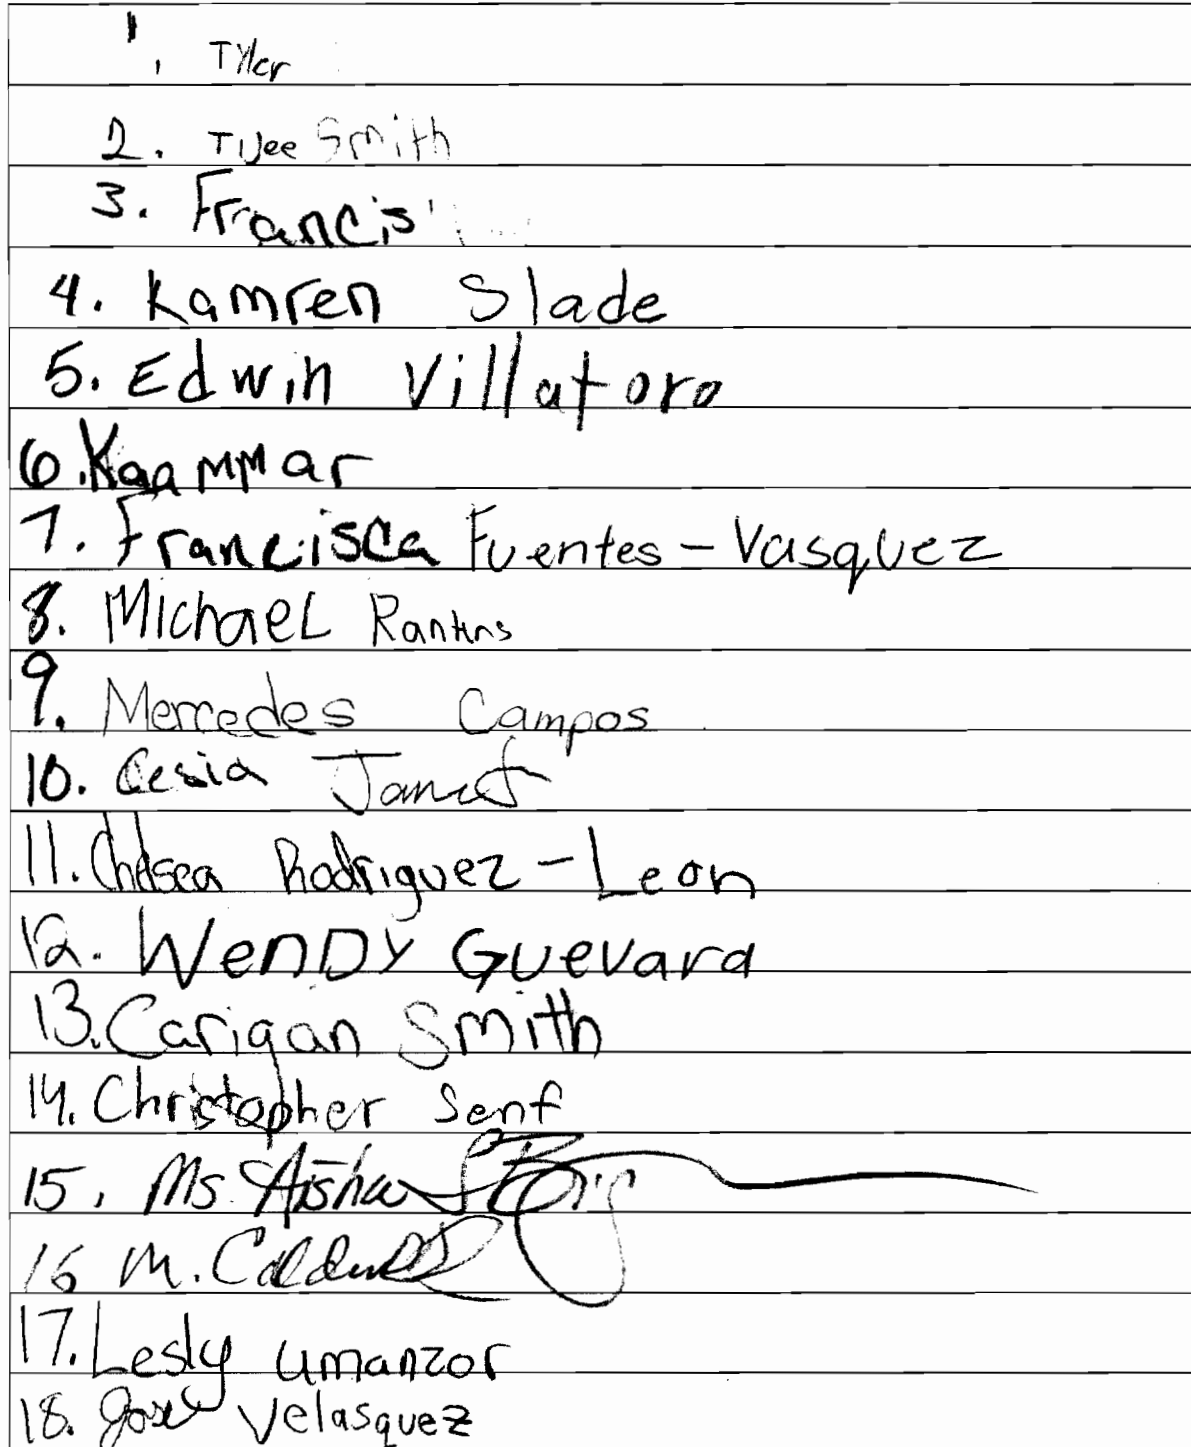 1. Tyler
2. TiJee Smith
3. Francis
4. Kamren Slade
5. Edwin Villatoro
6. Kaammar
7. Francisca Fuentes-Vasquez
8. Michael Rankins
9. Mercedes Campos
10. Cesia Janet
11. Chelsea Rodriguez-Leon
12. Wendy Guevara
13. Carigan Smith
14. Christopher Senf
15. Ms. Aisha
16 M. Caldwell
17. Lesly Umanzor
18. Jose Velasquez